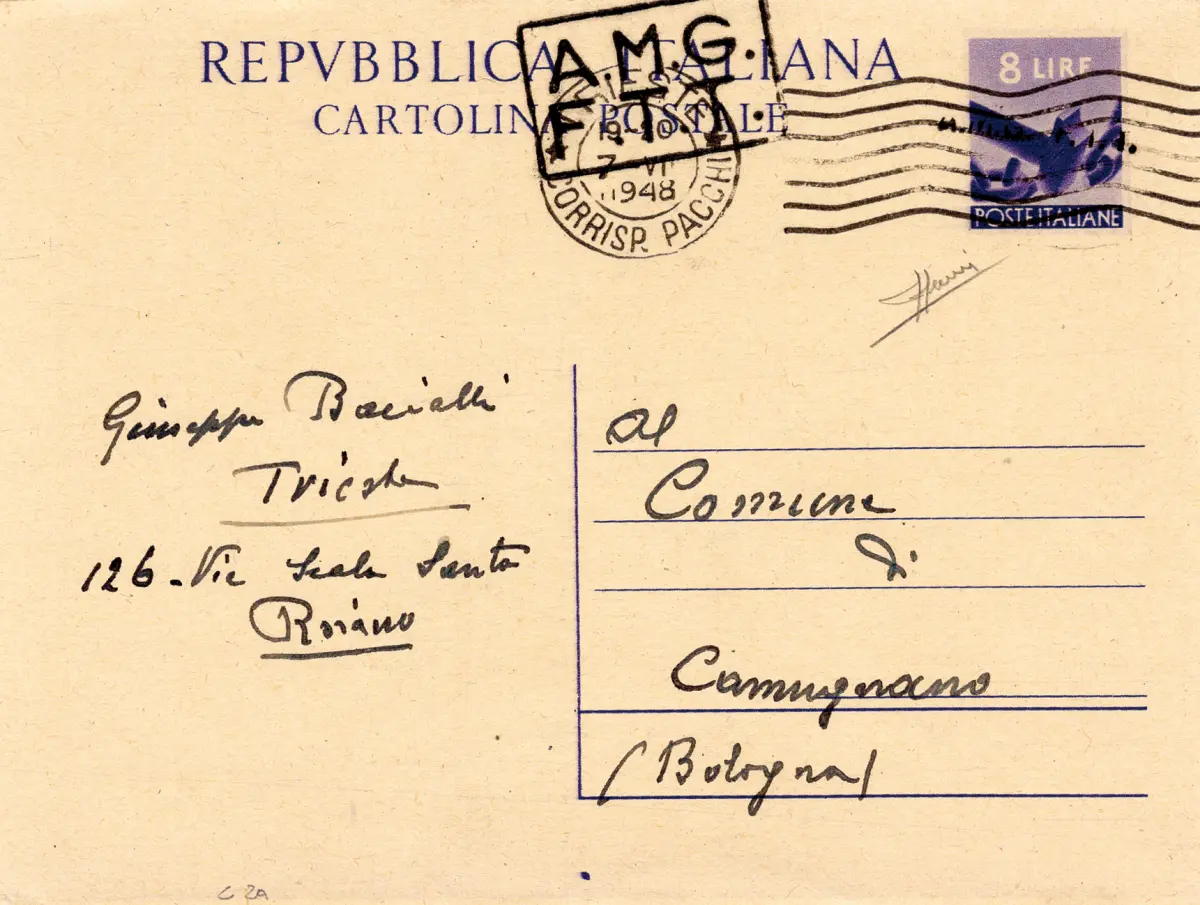 REPVBBLICA ITALIANA
CARTOLINA POSTALE
A.M.G.
F.T.T.
TRIESTE
19-20
7 VI
1948
CORRISP. PACCHI
8 LIRE
A.M.G. F.T.T.
POSTE ITALIANE
Giuseppe
Trieste
126 - Via Scala Santa
Roiano
Al
Comune
di
Camugnano
(Bologna)
C 2A